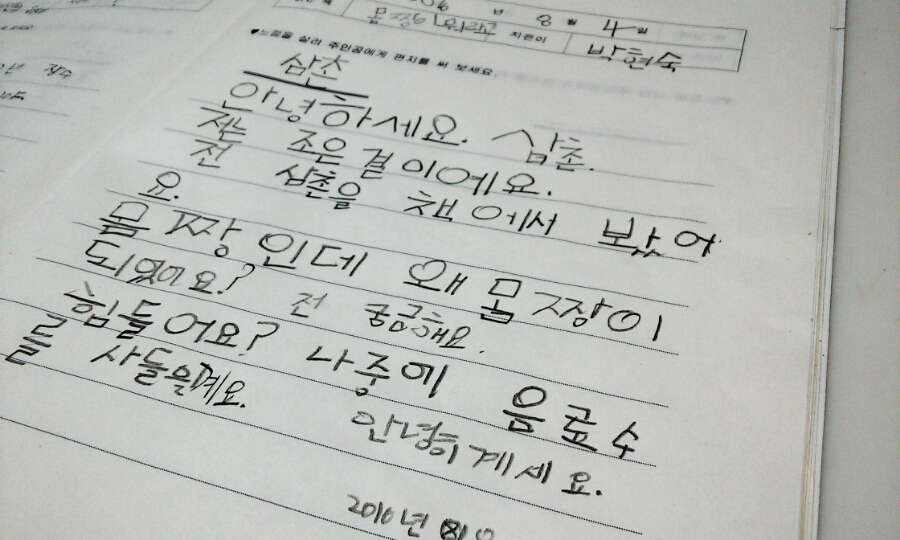 년 8월 4일
지은이 박현숙
♥느낌을 살려 주인공에게 편지를 써 보세요.
삼촌
안녕하세요. 삼촌.
저는 조은결이에요.
전 삼촌을 책에서 봤어
요.
몸짱인데 왜 몸짱이
되었어요? 전 궁금해요.
힘들어요? 나중에 음료수
를 사들을께요.
안녕히 계세요.
2010년